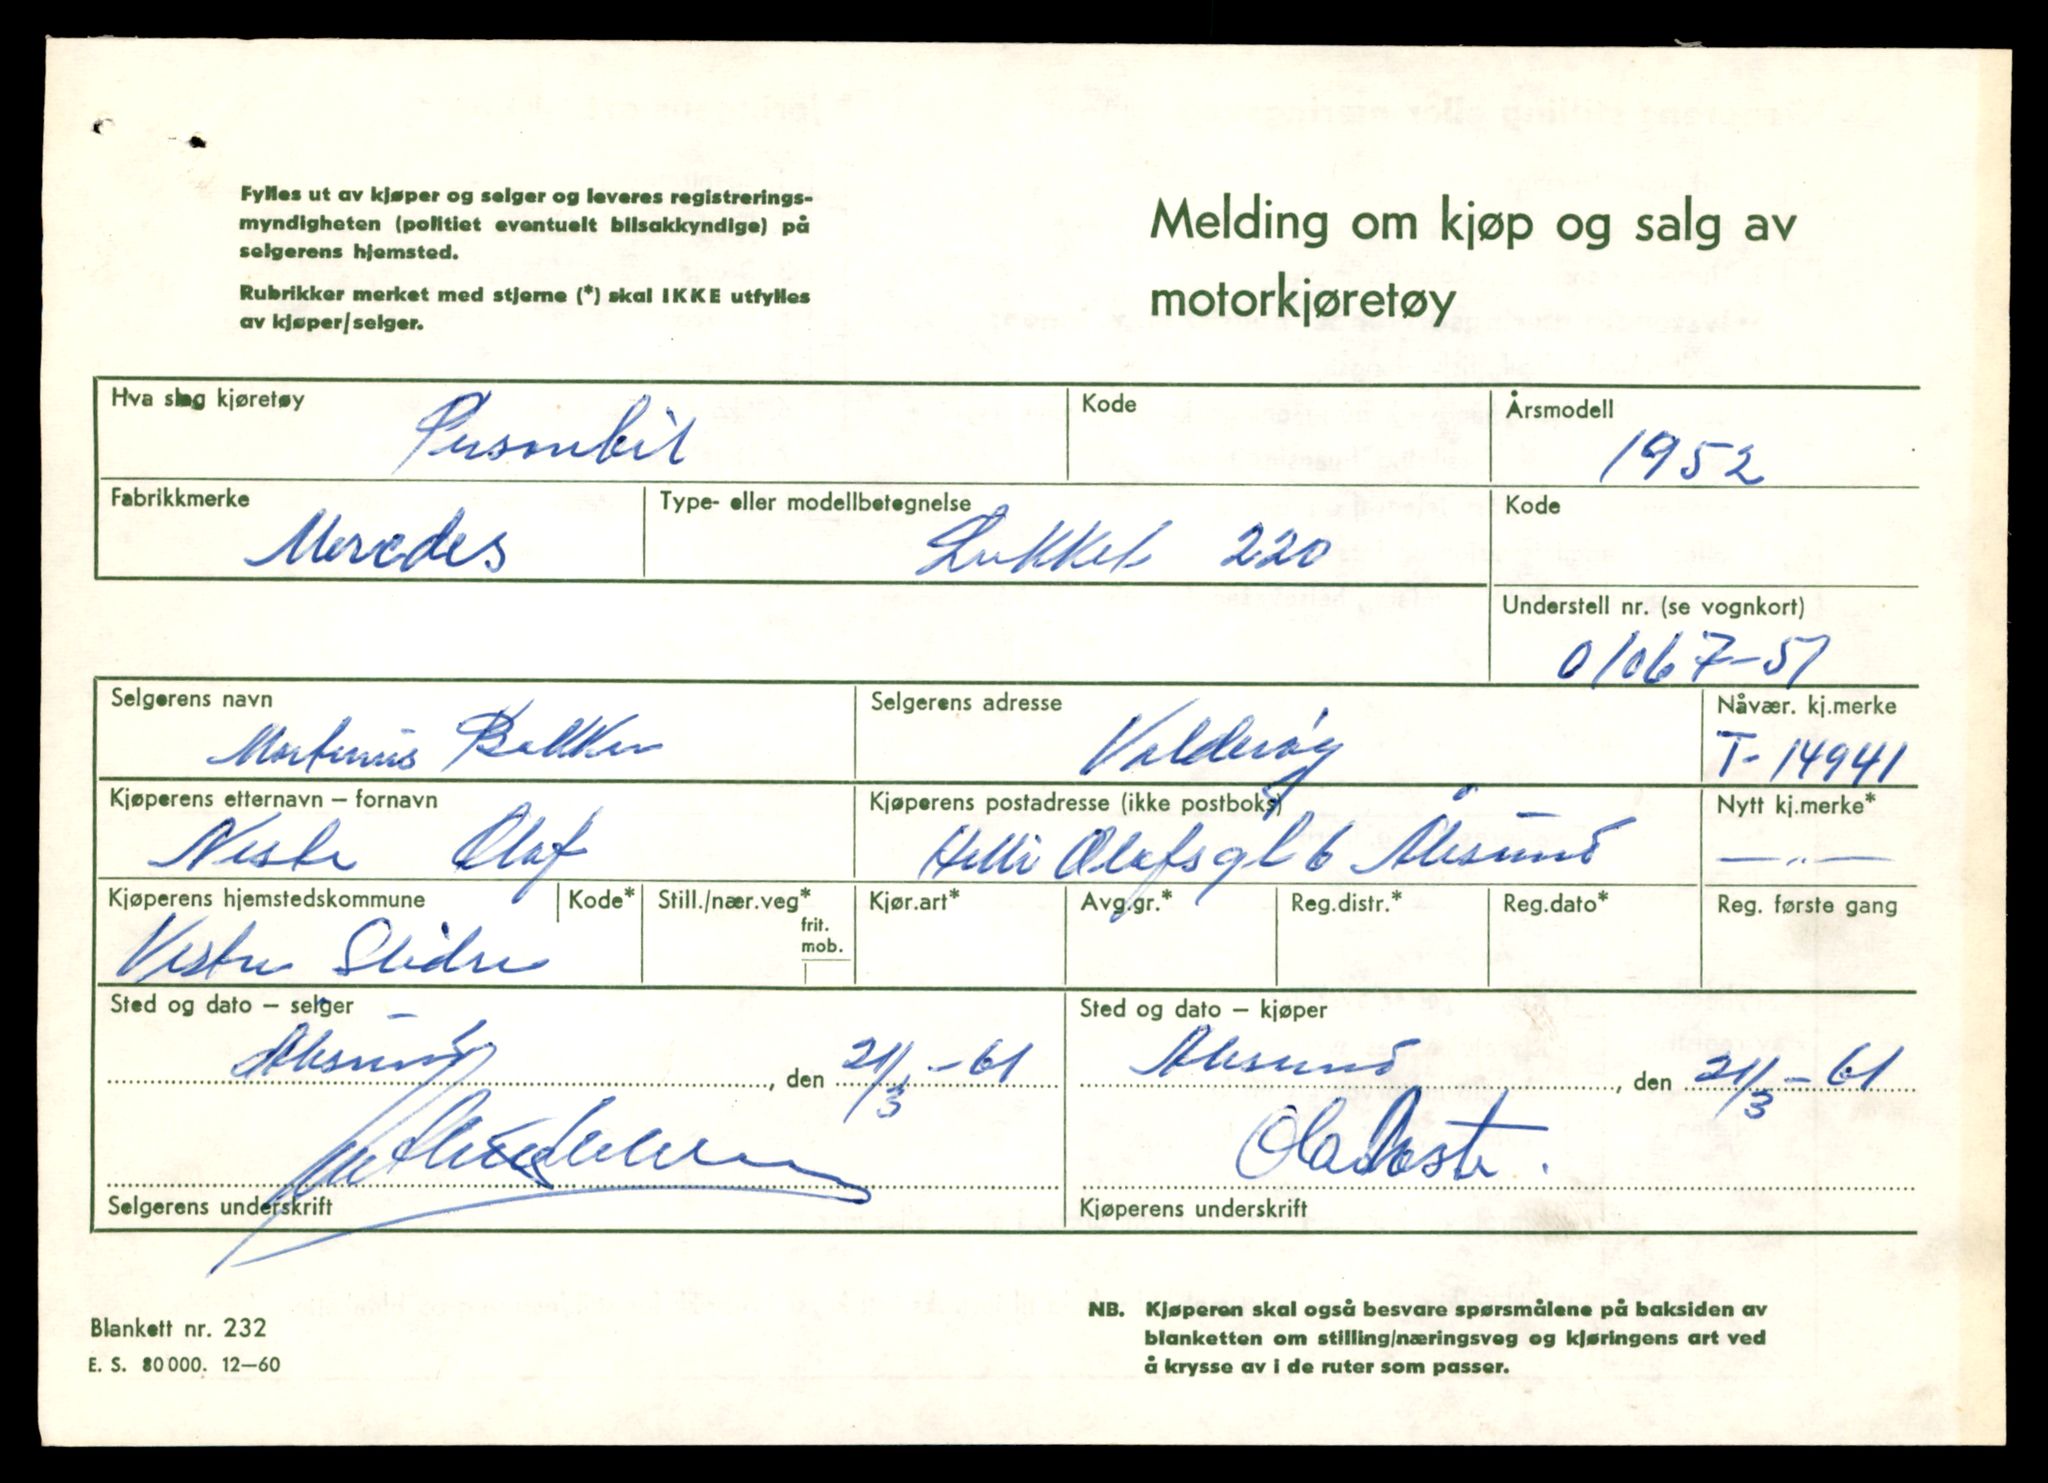 Fylles ut av kjøper og selger og leveres registrerings-
myndigheten (politiet eventuelt bilsakkyndige) på
selgerens hjemsted.
Rubrikker merket med stjerne (*) skal IKKE utfylles
av kjøper/selger.
Melding om kjøp og salg av
motorkjøretøy
Hva slag kjøretøy
Personbil
Kode
Årsmodell
1952
Fabrikkmerke
Mercedes
Type- eller modellbetegnelse
Lukket 220
Kode
Understell nr. (se vognkort)
01067-51
Selgerens navn
Martinus Bakken
Selgerens adresse
Valderøy
Nåvær. kj.merke
T-14941
Kjøperens etternavn – fornavn
Neste Olaf
Kjøperens postadresse (ikke postboks)
Olafsgt 6 Ålesund
Nytt kj.merke*
— " —
Kjøperens hjemstedskommune
Vestre Slidre
Kode*
Still./nær.veg*
frit.
mob.
Kjør.art*
Avg.gr.*
Reg.distr.*
Reg.dato*
Reg. første gang
Sted og dato – selger
Ålesund, den 21/3-61
Selgerens underskrift
Sted og dato – kjøper
Ålesund, den 21/3-61
Ola Neste.
Kjøperens underskrift
Blankett nr. 232
E. S. 80000. 12–60
NB. Kjøperen skal også besvare spørsmålene på baksiden av
blanketten om stilling/næringsveg og kjøringens art ved
å krysse av i de ruter som passer.